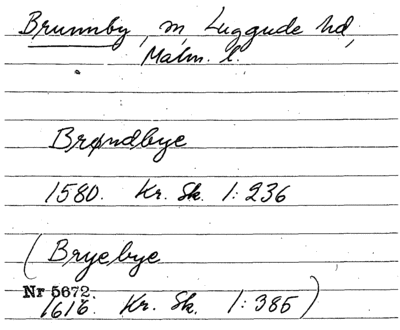 Brunnby, m, Luggude hd,
Malm. l.
Brøndbye
1580. Kr. Sk. 1:236
(Bryebye
Nr 5672.
1616. Kr. Sk. 1:385)